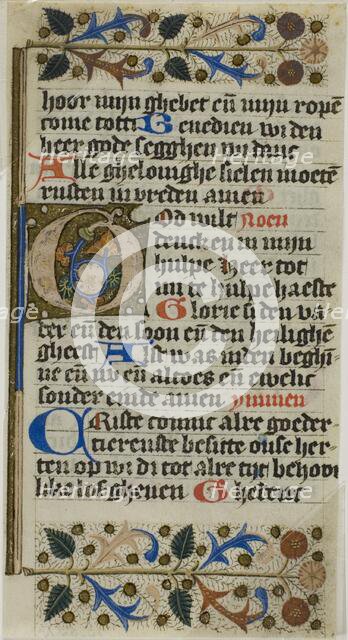 hoor mijn ghebet eñ mijn ropē
come tot ti Benedien wi den
heer gode segghen wi danc
Alle ghelovighe sielen moetē
rusten in vreden amen
God wilt Noen
dencken in mijn
hulpe Heer tot
mi te hulpe haeste
Glorie si den va
der eñ den soon eñ den heilighē
gheest Alst was inden beghī
ne eñ nv eñ altoes eñ ewelic
sonder einde amen ymmen
Criste comme alre goeder
tierenste besitte onse her
ten op wi di tot alre tijt behoor
like lof gheven Eherste